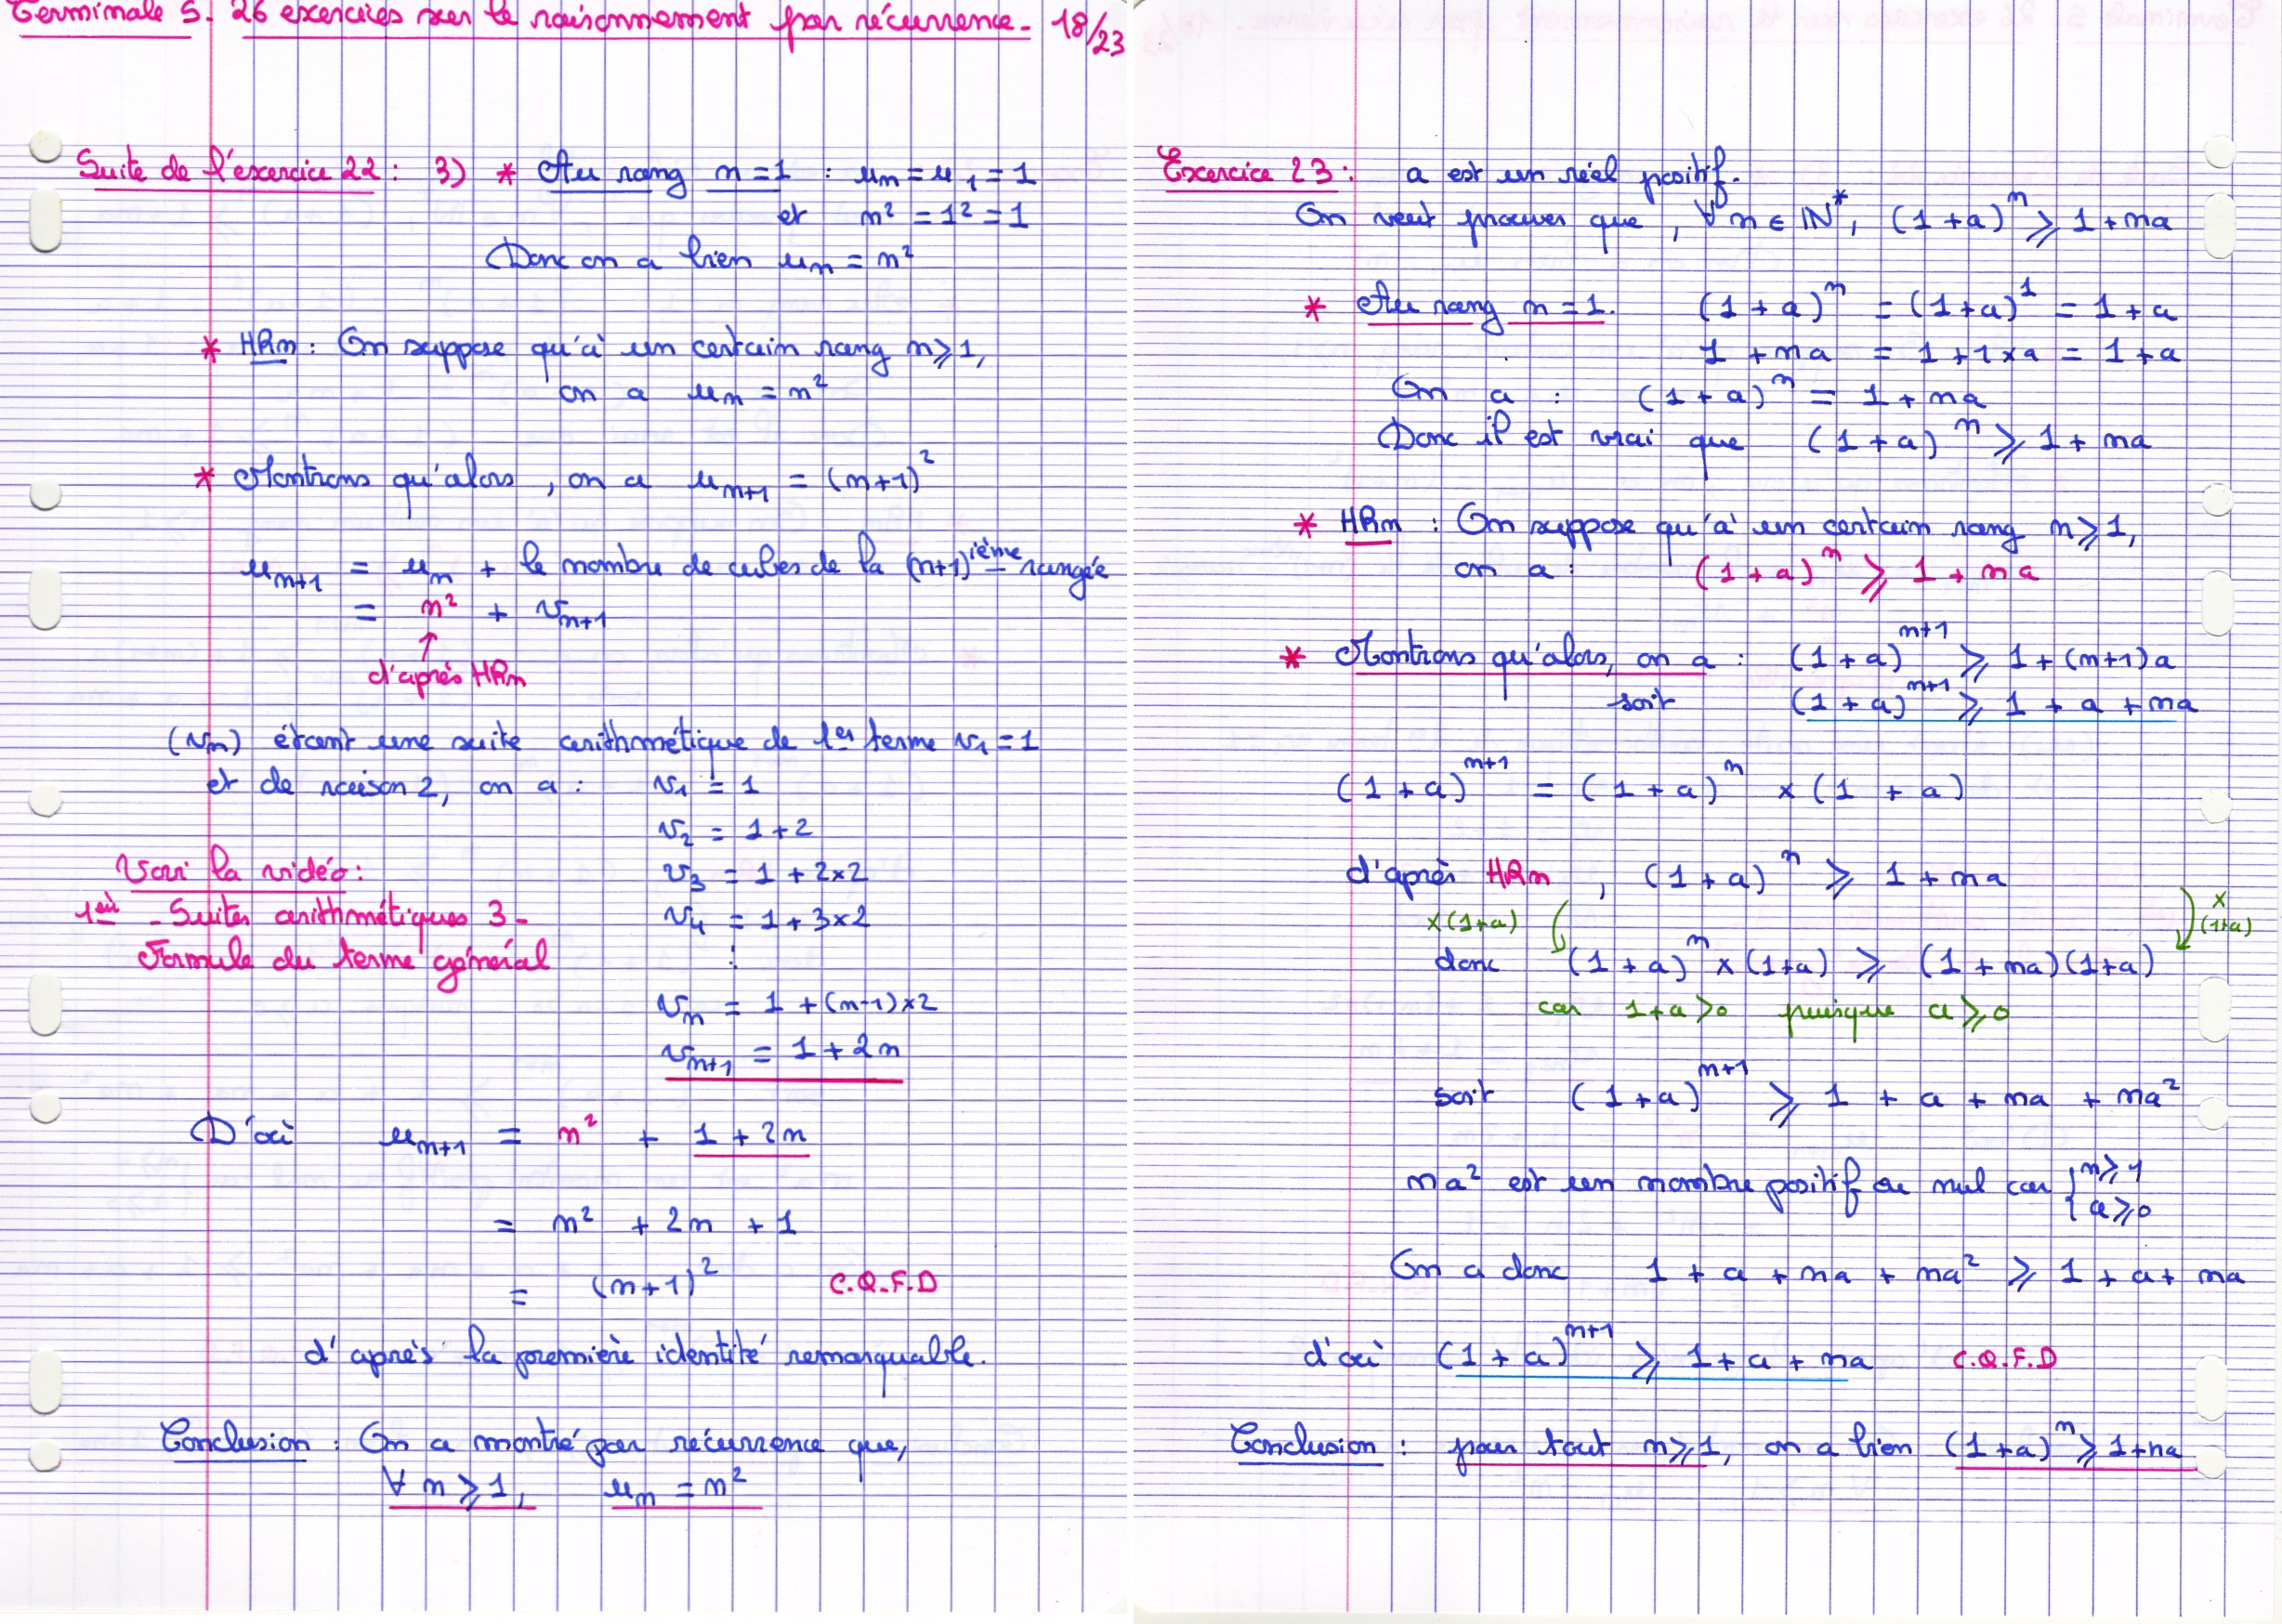 Terminale S. 26 exercices sur le raisonnement par récurrence. 18/23
Suite de l'exercice 22 : 3) * Au rang n = 1 : uₙ = u₁ = 1
et n² = 1² = 1
Donc on a bien uₙ = n²
* HRn : On suppose qu'à un certain rang n ⩾ 1,
on a uₙ = n²
* Montrons qu'alors, on a uₙ₊₁ = (n+1)²
uₙ₊₁ = uₙ + le nombre de cubes de la (n+1)ième rangée
= n² + vₙ₊₁
↑
d'après HRn
(vₙ) étant une suite arithmétique de 1er terme v₁ = 1
et de raison 2, on a : v₁ = 1
v₂ = 1 + 2
Voir la vidéo :
v₃ = 1 + 2×2
1ère - Suites arithmétiques 3 -
v₄ = 1 + 3×2
Formule du terme général
⋮
vₙ = 1 + (n-1)×2
vₙ₊₁ = 1 + 2n
D'où uₙ₊₁ = n² + 1 + 2n
= n² + 2n + 1
= (n+1)² C.Q.F.D
d'après la première identité remarquable.
Conclusion : On a montré par récurrence que,
∀ n ⩾ 1, uₙ = n²
Exercice 23 : a est un réel positif.
On veut prouver que, ∀ n ∈ ℕ*, (1 + a)ⁿ ⩾ 1 + na
* Au rang n = 1. (1 + a)ⁿ = (1 + a)¹ = 1 + a
1 + na = 1 + 1×a = 1 + a
On a : (1 + a)ⁿ = 1 + na
Donc il est vrai que (1 + a)ⁿ ⩾ 1 + na
* HRn : On suppose qu'à un certain rang n ⩾ 1,
on a : (1 + a)ⁿ ⩾ 1 + na
* Montrons qu'alors, on a : (1 + a)ⁿ⁺¹ ⩾ 1 + (n+1)a
soit (1 + a)ⁿ⁺¹ ⩾ 1 + a + na
(1 + a)ⁿ⁺¹ = (1 + a)ⁿ × (1 + a)
d'après HRn, (1 + a)ⁿ ⩾ 1 + na
×(1+a) × (1+a)
donc (1 + a)ⁿ × (1+a) ⩾ (1 + na)(1+a)
car 1+a > 0 puisque a ⩾ 0
soit (1 + a)ⁿ⁺¹ ⩾ 1 + a + na + na²
na² est un nombre positif ou nul car { n ⩾ 1
a ⩾ 0
On a donc 1 + a + na + na² ⩾ 1 + a + na
d'où (1 + a)ⁿ⁺¹ ⩾ 1 + a + na C.Q.F.D
Conclusion : pour tout n ⩾ 1, on a bien (1+a)ⁿ ⩾ 1+na